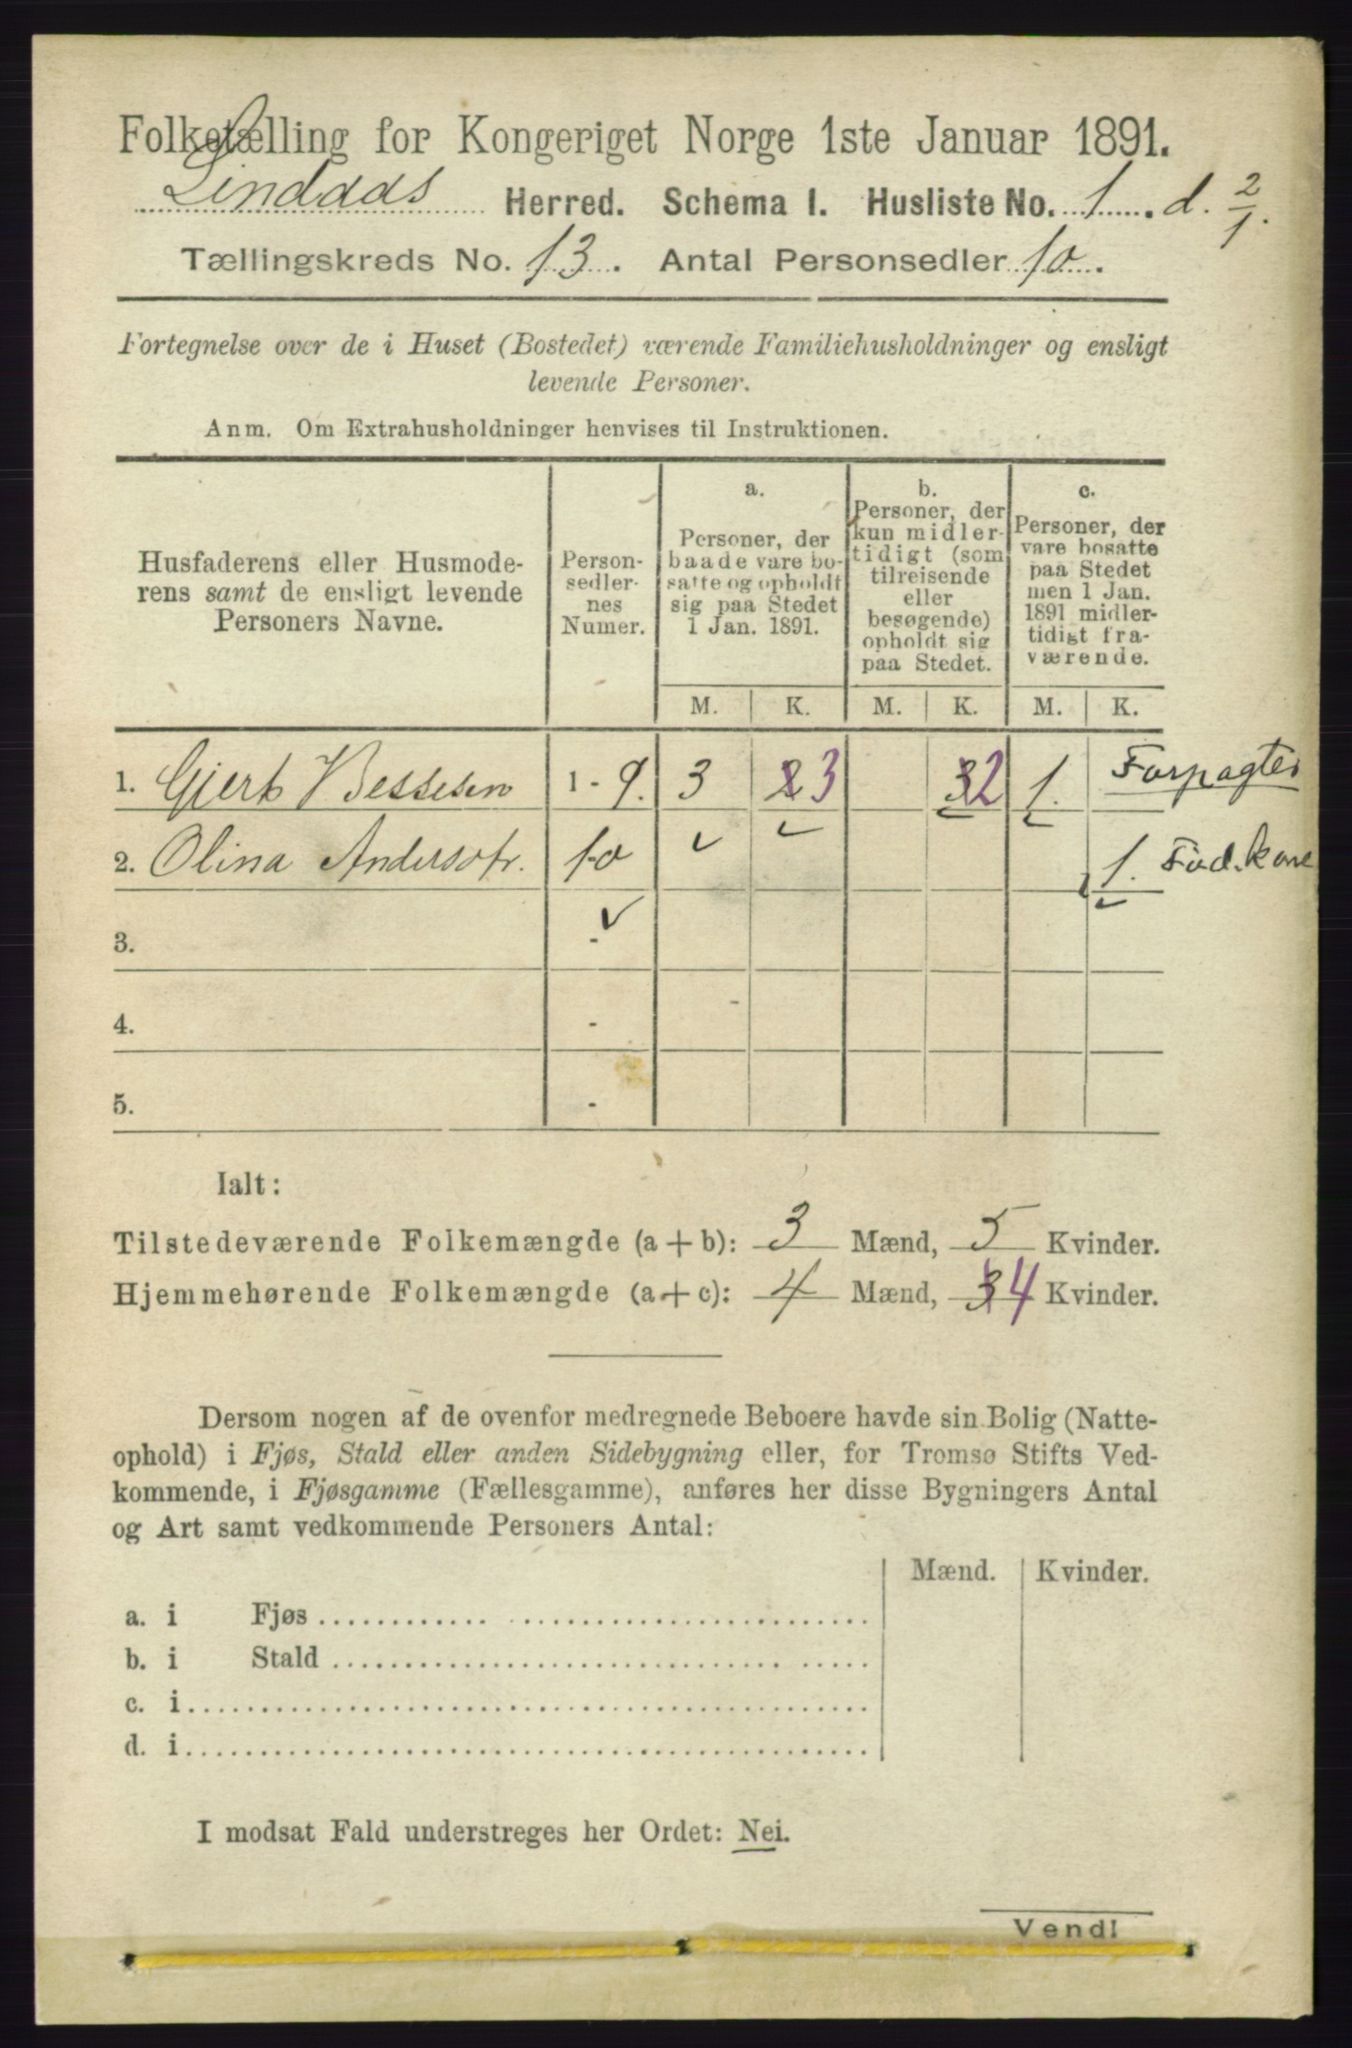 Folketælling for Kongeriget Norge 1ste Januar 1891.
Lindaas Herred. Schema I. Husliste No. 1. d. 2/1.
Tællingskreds No. 13. Antal Personsedler 10.
Fortegnelse over de i Huset (Bostedet) værende Familiehusholdninger og ensligt
levende Personer.
Anm. Om Extrahusholdninger henvises til Instruktionen.
Husfaderens eller Husmode-
rens samt de ensligt levende
Personers Navne.
Person-
sedler-
nes
Numer.
a.
Personer, der
baade vare bo-
satte og opholdt
sig paa Stedet
1 Jan. 1891.
b.
Personer, der
kun midler-
tidigt (som
tilreisende
eller
besøgende)
opholdt sig
paa Stedet.
c.
Personer, der
vare bosatte
paa Stedet
men 1 Jan.
1891 midler-
tidigt fra-
værende.
M. K. M. K. M. K.
1. Gjert Bessesen 1 - 9. 3 2 3 3 2 1. Forpagter
2. Olina Andersdtr. 10 1. Fød.kone
3. -
4. -
5. -
Ialt:
Tilstedeværende Folkemængde (a + b): 3 Mænd, 5 Kvinder.
Hjemmehørende Folkemængde (a + c): 4 Mænd, 3 4 Kvinder.
Dersom nogen af de ovenfor medregnede Beboere havde sin Bolig (Natte-
ophold) i Fjøs, Stald eller anden Sidebygning eller, for Tromsø Stifts Ved-
kommende, i Fjøsgamme (Fællesgamme), anføres her disse Bygningers Antal
og Art samt vedkommende Personers Antal:
Mænd. Kvinder.
a. i Fjøs
b. i Stald
c. i
d. i
I modsat Fald understreges her Ordet: Nei.
Vend!